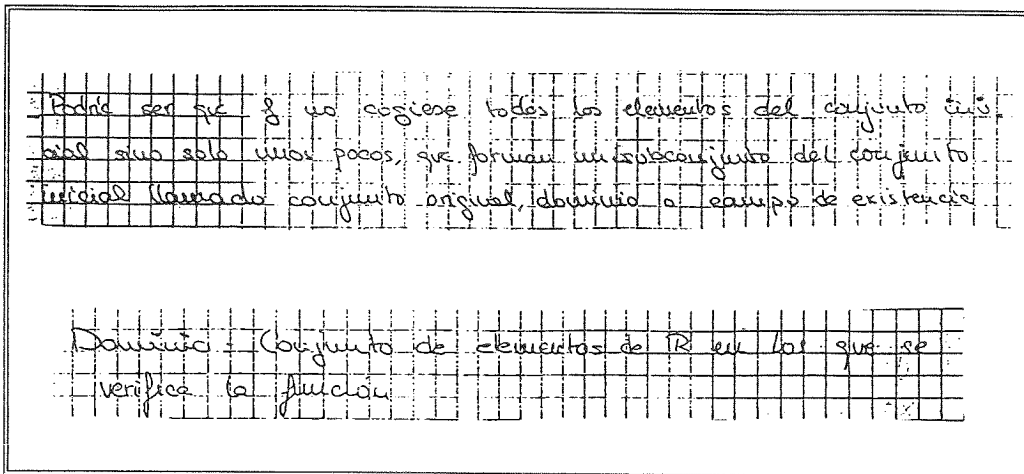 Podría ser que f no cogiese todos los elementos del conjunto ini-
cial sino solo unos pocos, que forman un subconjunto del conjunto
inicial llamado conjunto original, dominio o campo de existencia
Dominio = Conjunto de elementos de R en los que se
verifica la función